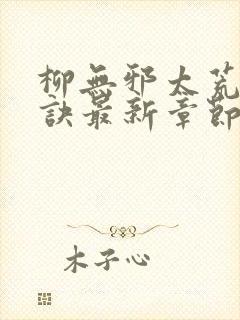 柳無邪太荒
訣最新章節
木子心